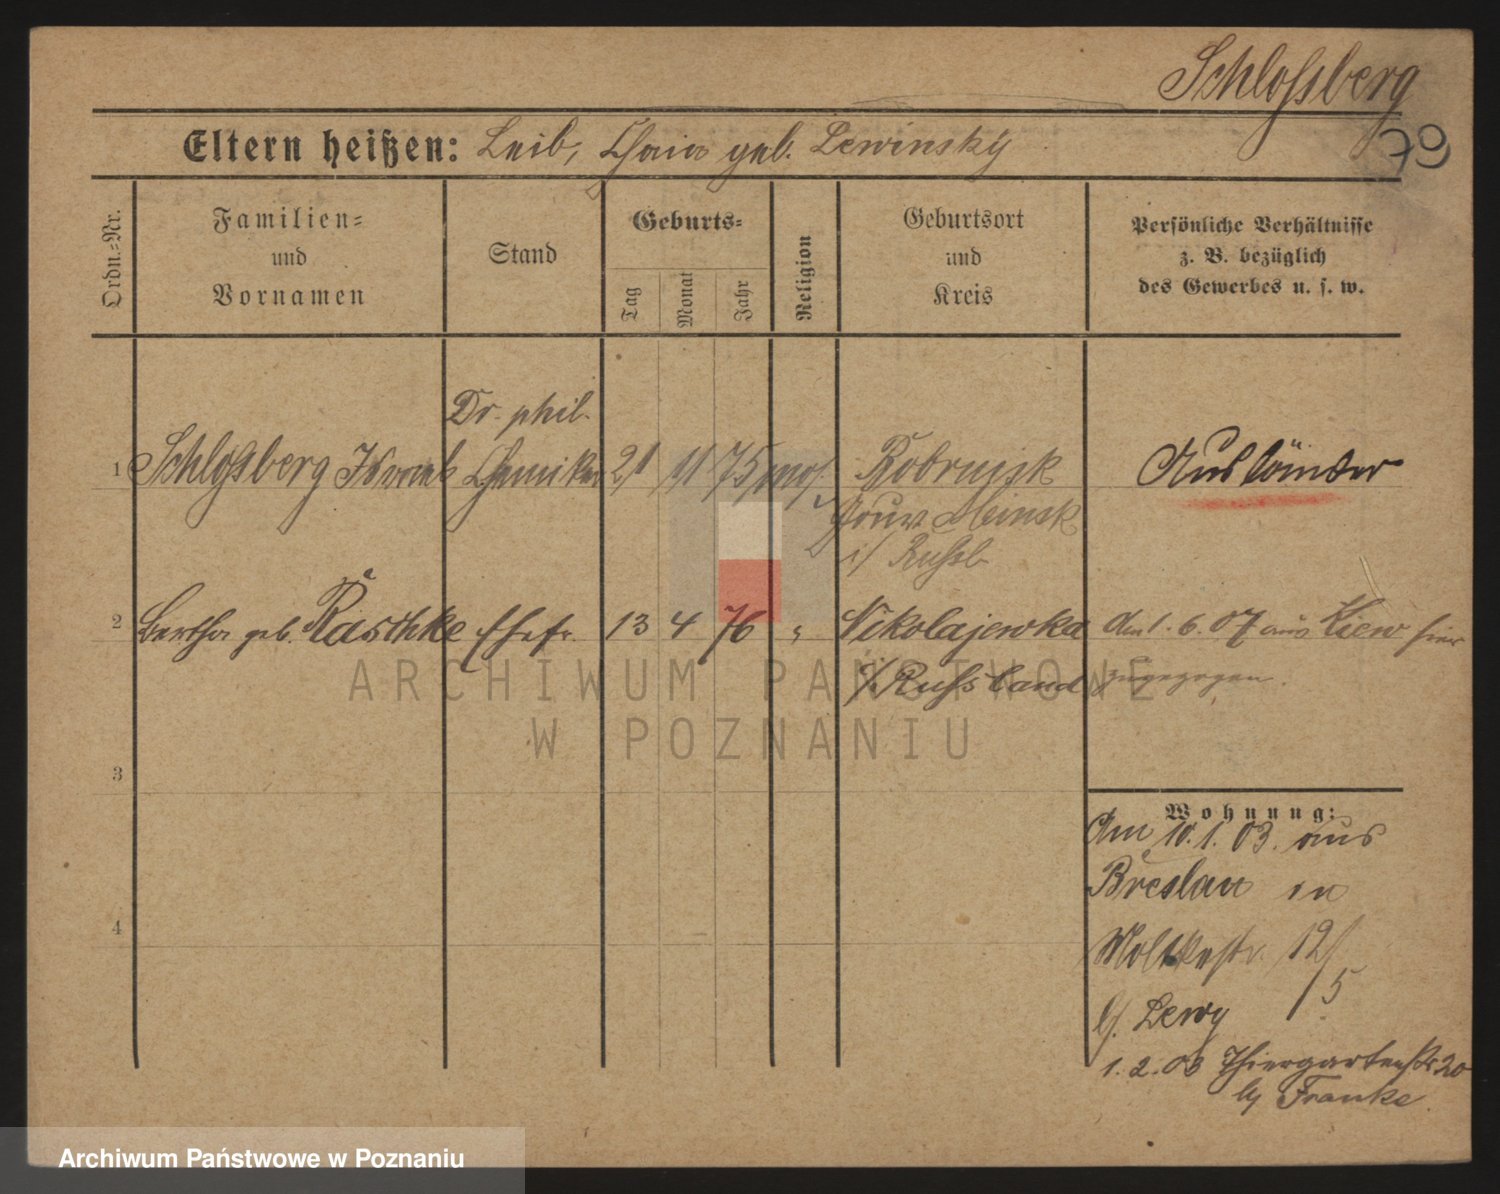 Schloſsberg
79
Eltern heißen: Leib, Chaia geb. Lewinsky
Ordn.=Nr.
Familien=
und
Vornamen
Stand
Geburts=
Tag
Monat
Jahr
Religion
Geburtsort
und
Kreis
Persönliche Verhältnisse
z. B. bezüglich
des Gewerbes u. s. w.
Dr. phil.
1 Schloſsberg Chemiker 21 11 75 mos. Bobruisk Ausländer
Gouv. Minsk
i/ Russl.
2 Bertha geb. Raschke Ehefr. 13 4 76 " Nikolajewka Am 1. 6. 07 aus Kiew hier
i/ Russland zugezogen.
3
4
Wohnung:
Am 10. 1. 03. aus
Breslau in
Moltkestr. 12/
15
b/ Lewy
1. 2. 03 Thiergartenstr 20
by Franke
ARCHIWUM PAŃSTWOWE
W POZNANIU
Archiwum Państwowe w Poznaniu